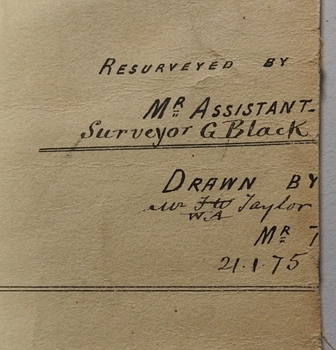 RESURVEYED BY
MR ASSISTANT
Surveyor G Black
DRAWN BY
Mr J W Taylor
W.A
MR T
21.1.75